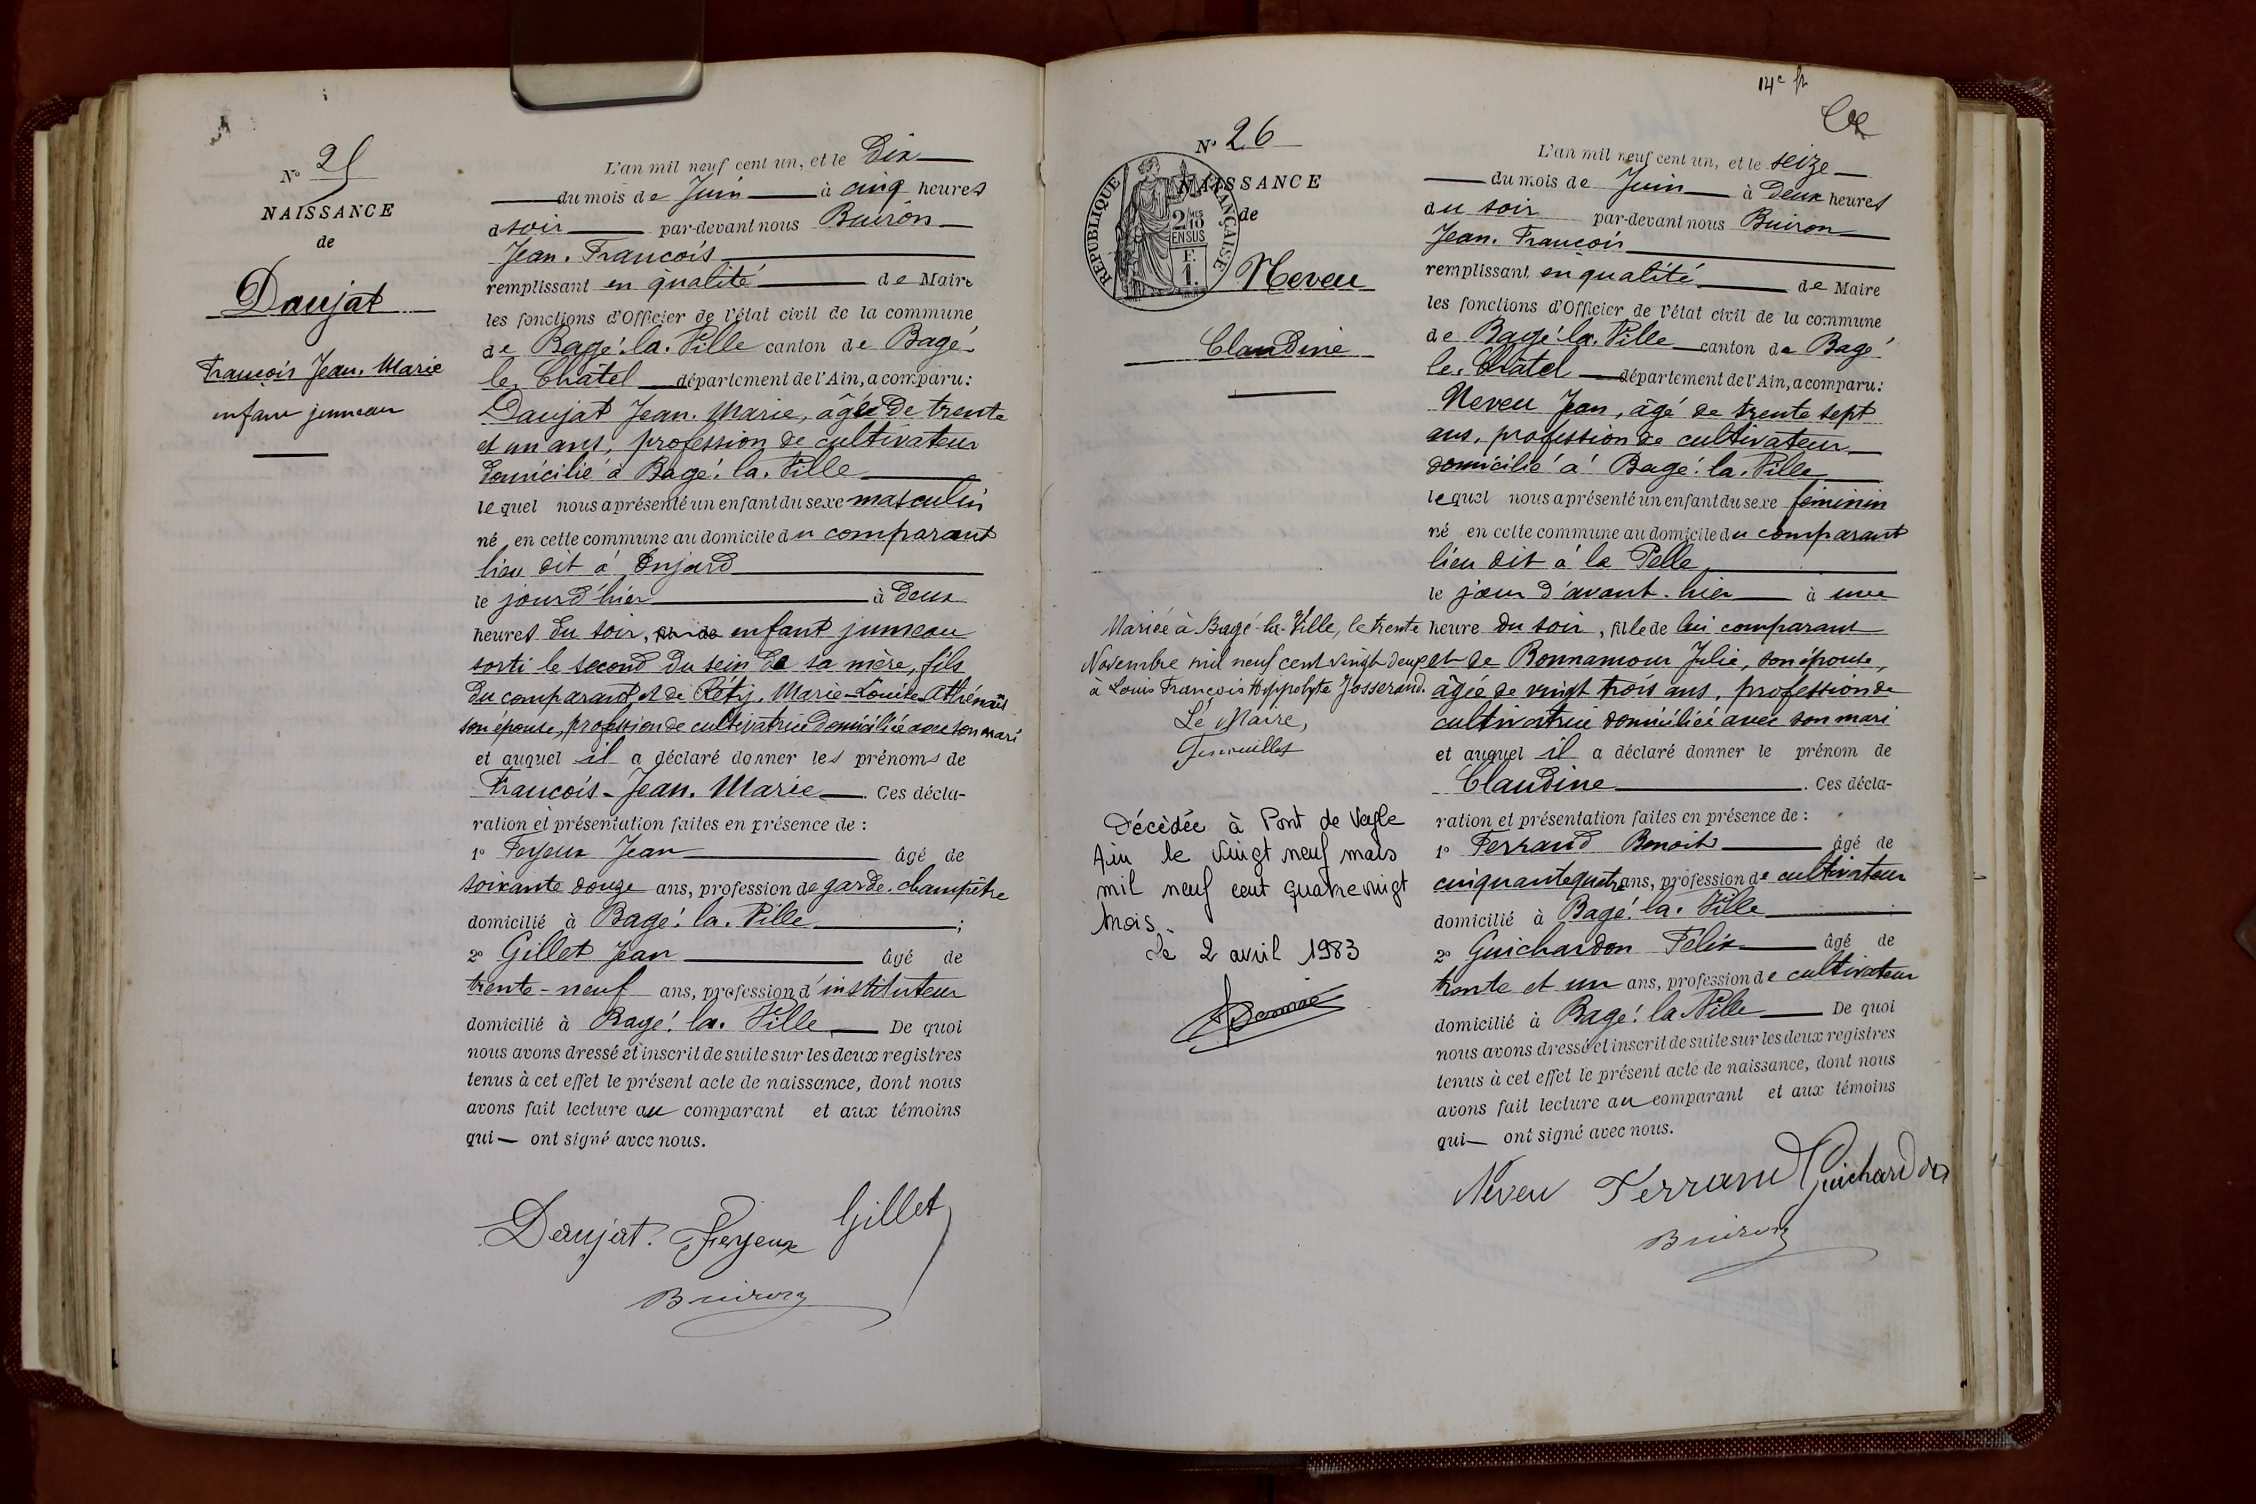 N° 25
NAISSANCE
de
Daujat
François Jean. Marie
enfant jumeau
L'an mil neuf cent un, et le Dix
du mois de Juin à cinq heures
d soir par-devant nous Buiron
Jean. François
remplissant en qualité de Maire
les fonctions d'Officier de l'état civil de la commune
de Bagé. la. Ville canton de Bagé
le. Châtel département de l'Ain, a comparu :
Daujat Jean. Marie, âgé de trente
et un ans, profession de cultivateur
domicilié à Bagé. la. Ville
lequel nous a présenté un enfant du sexe masculin
né en cette commune au domicile du comparant
lieu dit à Onjard
le jour d'hier à deux
heures du soir, enfant jumeau
sorti le second du sein de sa mère, fils
du comparant et de Réty, Marie-Louise Athénaïs
son épouse, profession de cultivatrice domiciliée avec son mari
et auquel il a déclaré donner les prénoms de
François-Jean. Marie. Ces décla-
ration et présentation faites en présence de :
1° Feyeux Jean âgé de
soixante douze ans, profession de garde. champêtre
domicilié à Bagé. la. Ville ;
2° Gillet Jean âgé de
trente-neuf ans, profession d'instituteur
domicilié à Bagé. la. Ville De quoi
nous avons dressé et inscrit de suite sur les deux registres
tenus à cet effet le présent acte de naissance, dont nous
avons fait lecture au comparant et aux témoins
qui ont signé avec nous.
Daujat. Feyeux Gillet
Buiron
14e
N° 26
NAISSANCE
de
RÉPUBLIQUE FRANÇAISE
2/10
EN SUS
F.
1.
Neveu
Claudine
Mariée à Bagé-la-Ville, le trente
Novembre mil neuf cent vingt deux
à Louis François Hippolyte Josserand.
Le Maire,
Décédée à Pont de Veyle
Ain le vingt neuf mars
mil neuf cent quatre vingt
trois.
Le 2 avril 1983
L'an mil neuf cent un, et le seize
du mois de Juin à Deux heures
du soir par-devant nous Buiron
Jean. François
remplissant en qualité de Maire
les fonctions d'Officier de l'état civil de la commune
de Bagé. la. Ville canton de Bagé
le. Châtel département de l'Ain, a comparu :
Neveu Jean, âgé de trente sept
ans, profession de cultivateur
domicilié à Bagé. la. Ville
lequel nous a présenté un enfant du sexe féminin
né en cette commune au domicile du comparant
lieu dit à la Pelle
le jour d'avant. hier à une
heure du soir, fille de lui comparant
et de Bonnamour Julie, son épouse,
âgée de vingt trois ans, profession de
cultivatrice domiciliée avec son mari
et auquel il a déclaré donner le prénom de
Claudine. Ces décla-
ration et présentation faites en présence de :
1° Ferrand Benoit âgé de
cinquante quatre ans, profession de cultivateur
domicilié à Bagé. la. Ville
2° Guichardon Félix âgé de
trente et un ans, profession de cultivateur
domicilié à Bagé. la Ville De quoi
nous avons dressé et inscrit de suite sur les deux registres
tenus à cet effet le présent acte de naissance, dont nous
avons fait lecture au comparant et aux témoins
qui ont signé avec nous.
Neveu Ferrand Guichardon
Buiron